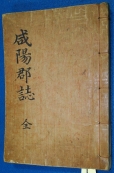 咸陽郡誌 全